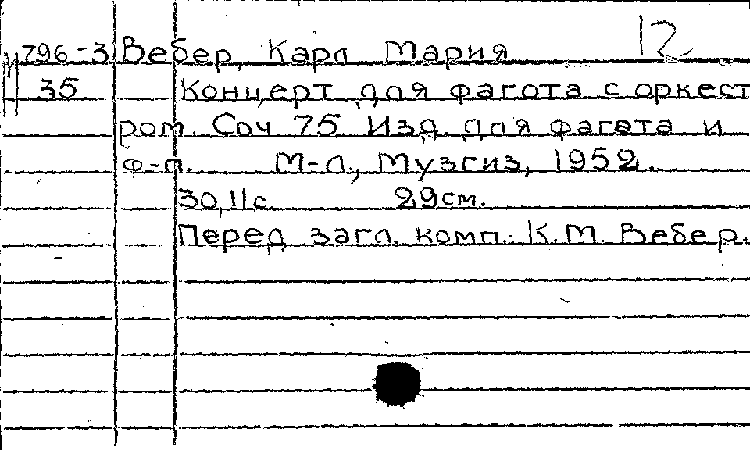 12
И796-3 Вебер, Карл Мария
35 Концерт для фагота с оркест
ром. Соч 75. Изд. для фагота и
ф-п. М-Л., Музгиз, 1952.
30,11с. 29см.
Перед загл. комп.: К.М. Вебер.